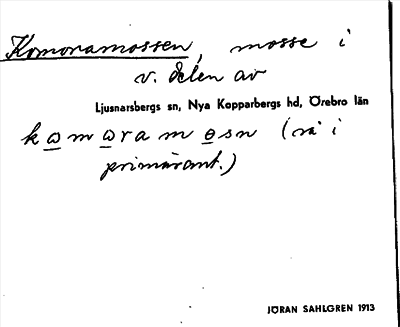 Komoramossen, mosse i
v. delen av
Ljusnarsbergs sn, Nya Kopparbergs hd, Örebro län
kωmωramosn (så i
primäruppt.)
JÖRAN SAHLGREN 1913